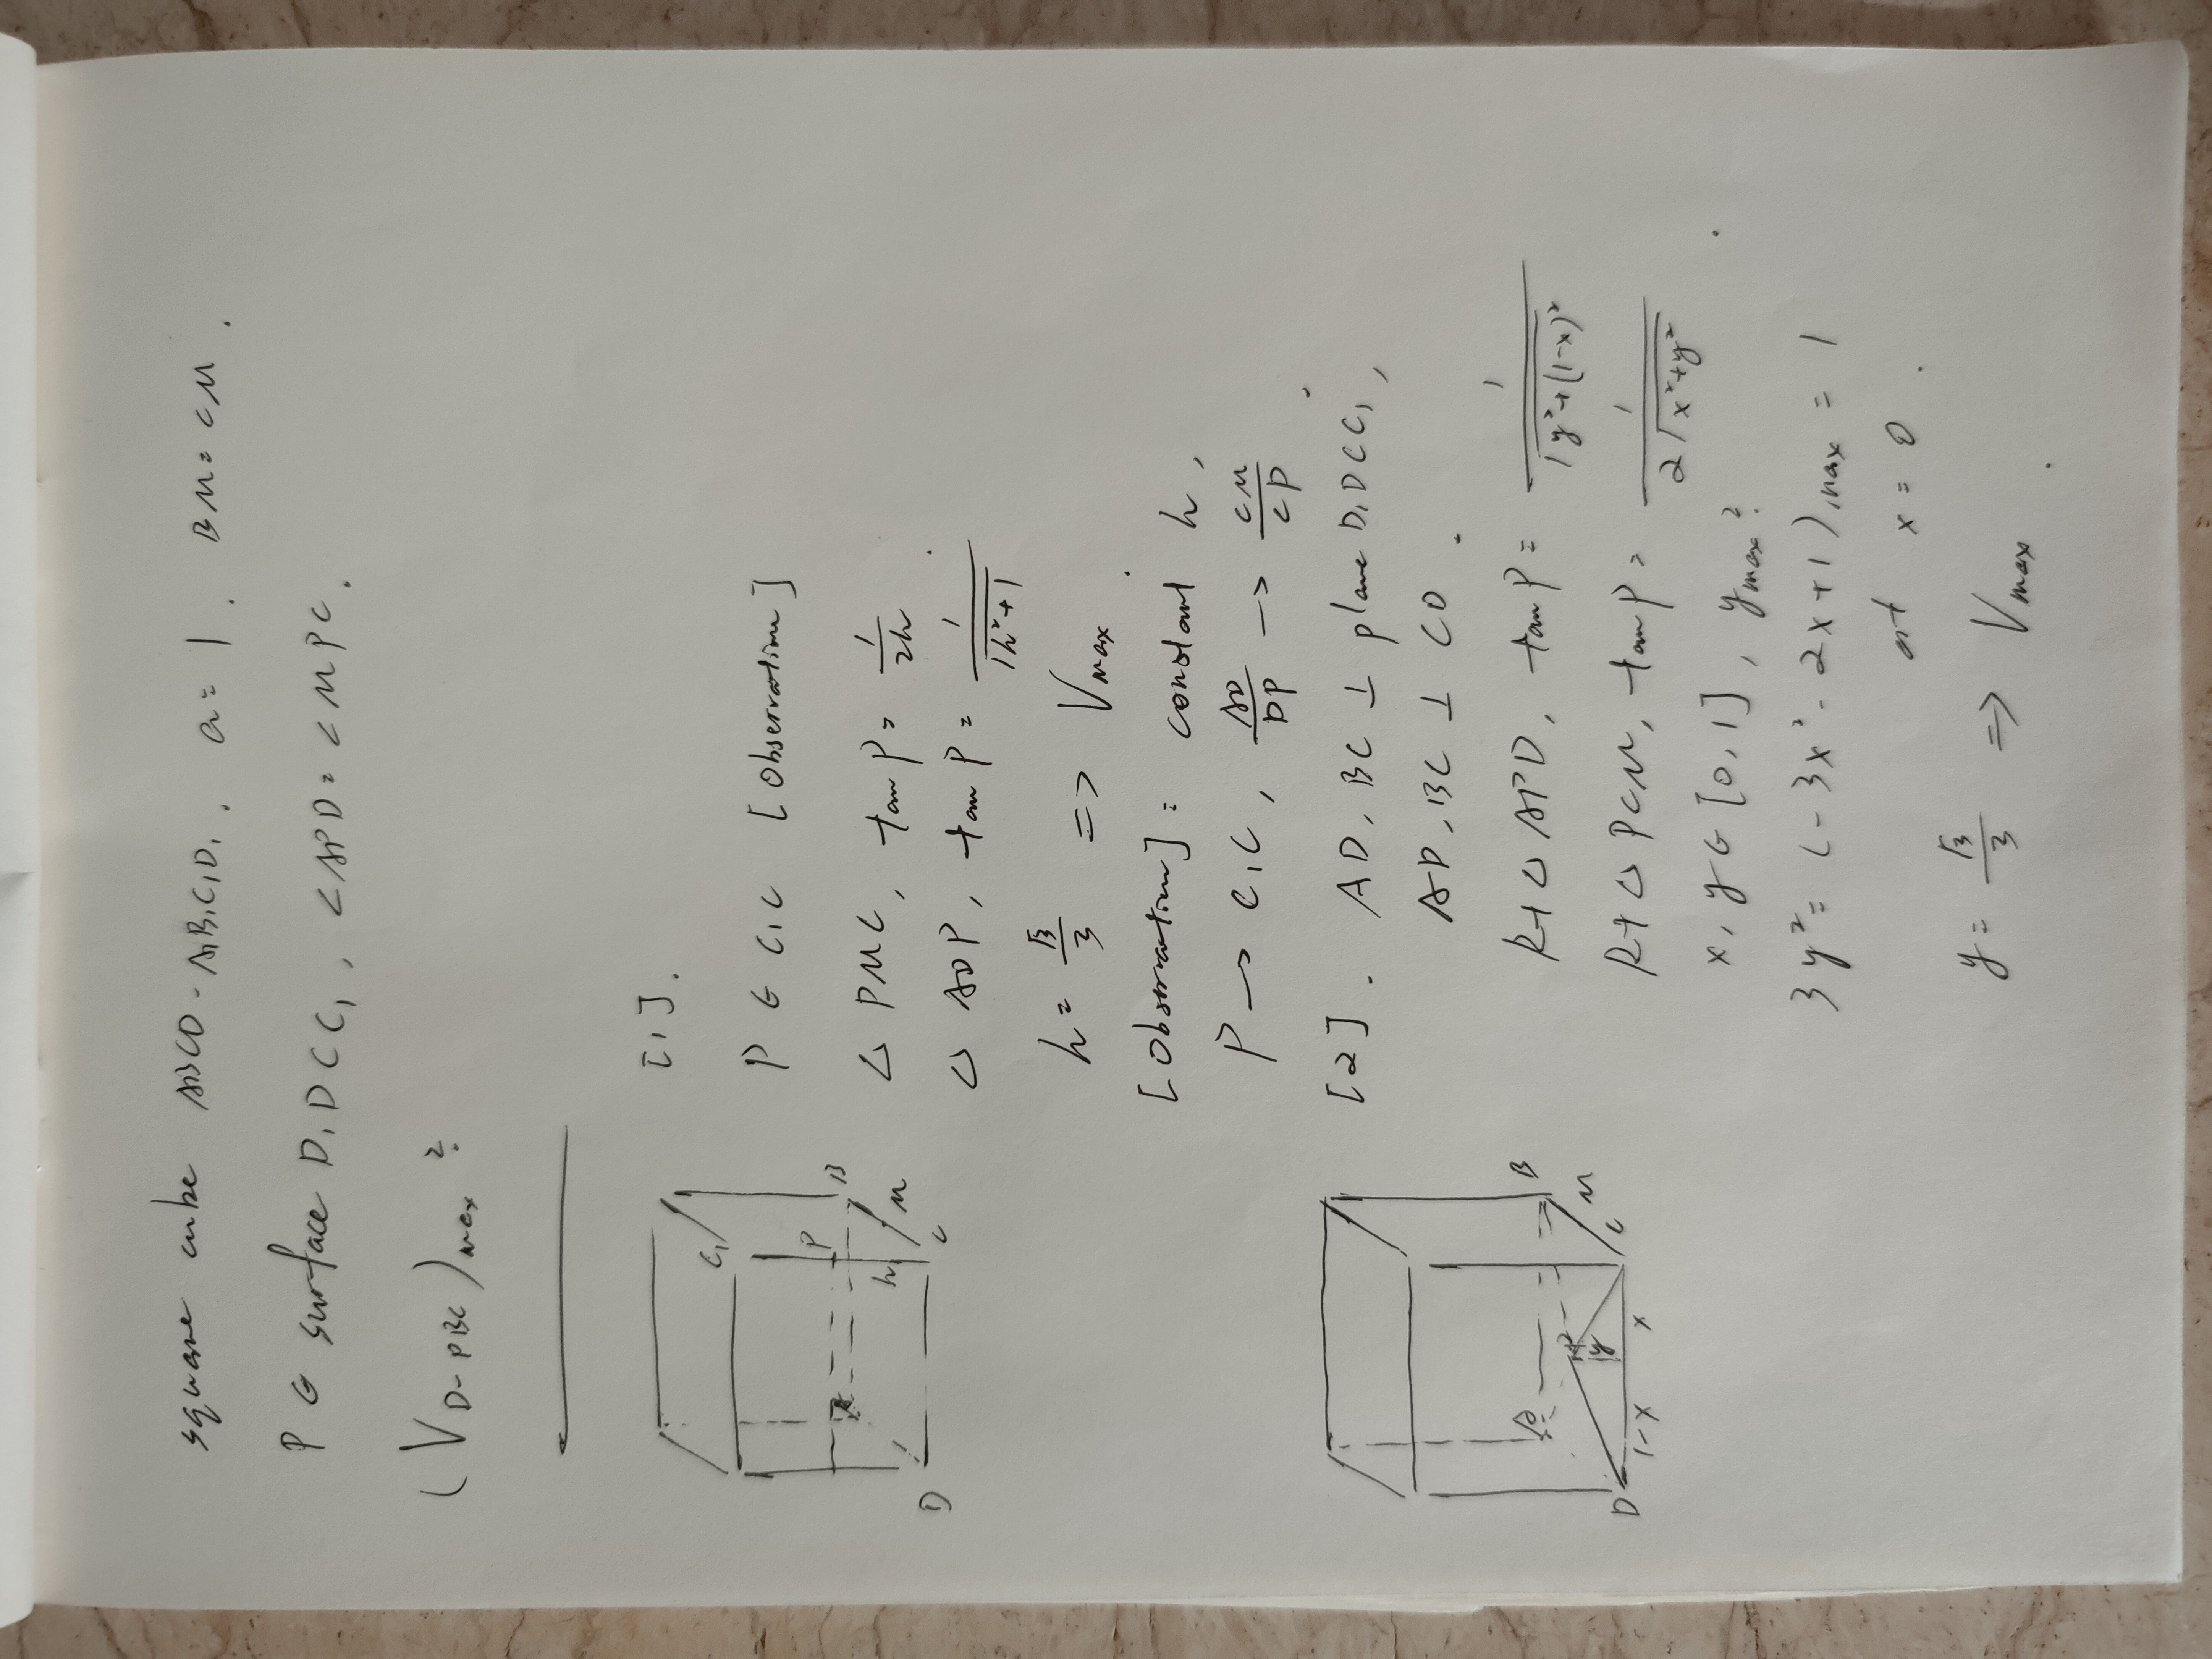 square cube ABCD-A₁B₁C₁D₁. a=1. BM=CM.
P ∈ surface D₁DCC₁, ∠APD=∠MPC.
(V_{D-PBC})_{max}?
[1].
C₁
P
B
h
M
D
C
P ∈ C₁C [Observation]
△ PMC, tan P = 1/(2h).
△ ADP, tan P = 1/√(h²+1)
h = √3/3 => V_{max}.
[Observation]: constant h,
P → C₁C, AD/DP → CM/CP.
[2]. AD, BC ⊥ plane D₁DCC₁,
AD, BC ⊥ CD.
A
B
P
y
M
D
C
1-x
x
Rt△APD, tan P = 1/√(y²+(1-x)²)
Rt△PCM, tan P = 1/(2√(x²+y²)).
x, y ∈ [0,1], y_{max}?
3y² = (-3x²-2x+1)_{max} = 1
at x = 0.
y = √3/3 => V_{max}.